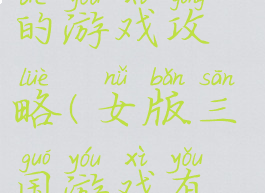 de yóu xì gōng
的游戏攻
lüè nǚ bǎn sān
略(女版三
guó yóu xì yǒu
国游戏有